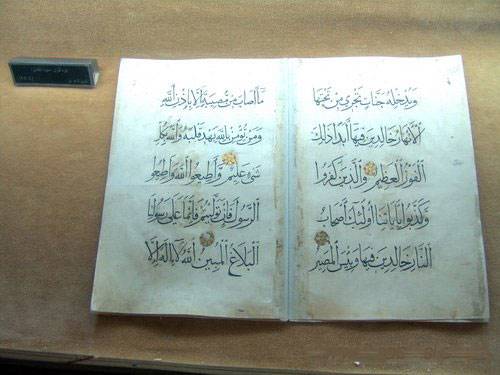 وَيُدْخِلْهُ جَنَّاتٍ تَجْرِي مِنْ تَحْتِهَا
الْأَنْهَارُ خَالِدِينَ فِيهَا أَبَدًا ذَلِكَ
الْفَوْزُ الْعَظِيمُ وَالَّذِينَ كَفَرُوا
وَكَذَّبُوا بِآيَاتِنَا أُولَئِكَ أَصْحَابُ
النَّارِ خَالِدِينَ فِيهَا وَبِئْسَ الْمَصِيرُ
مَا أَصَابَ مِنْ مُصِيبَةٍ إِلَّا بِإِذْنِ اللَّهِ
وَمَنْ يُؤْمِنْ بِاللَّهِ يَهْدِ قَلْبَهُ وَاللَّهُ بِكُلِّ
شَيْءٍ عَلِيمٌ وَأَطِيعُوا اللَّهَ وَأَطِيعُوا
الرَّسُولَ فَإِنْ تَوَلَّيْتُمْ فَإِنَّمَا عَلَى رَسُولِنَا
الْبَلَاغُ الْمُبِينُ اللَّهُ لَا إِلَهَ إِلَّا